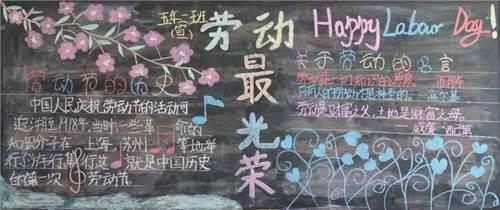 五年二班
(宣)
劳动最光荣
Happy Labour Day!
劳动节的历史
中国人民庆祝劳动节的活动可
追溯至1918年,当时,一些革命的
知识分子在上海、苏州等地举
行 这就是中国历史
的第一次劳动节。
关于劳动的名言
劳动是一切知识的源泉 陶铸
只有人的劳动才是神圣的。——高尔基
劳动是财富之父,土地是财富之母。
——威廉·配第